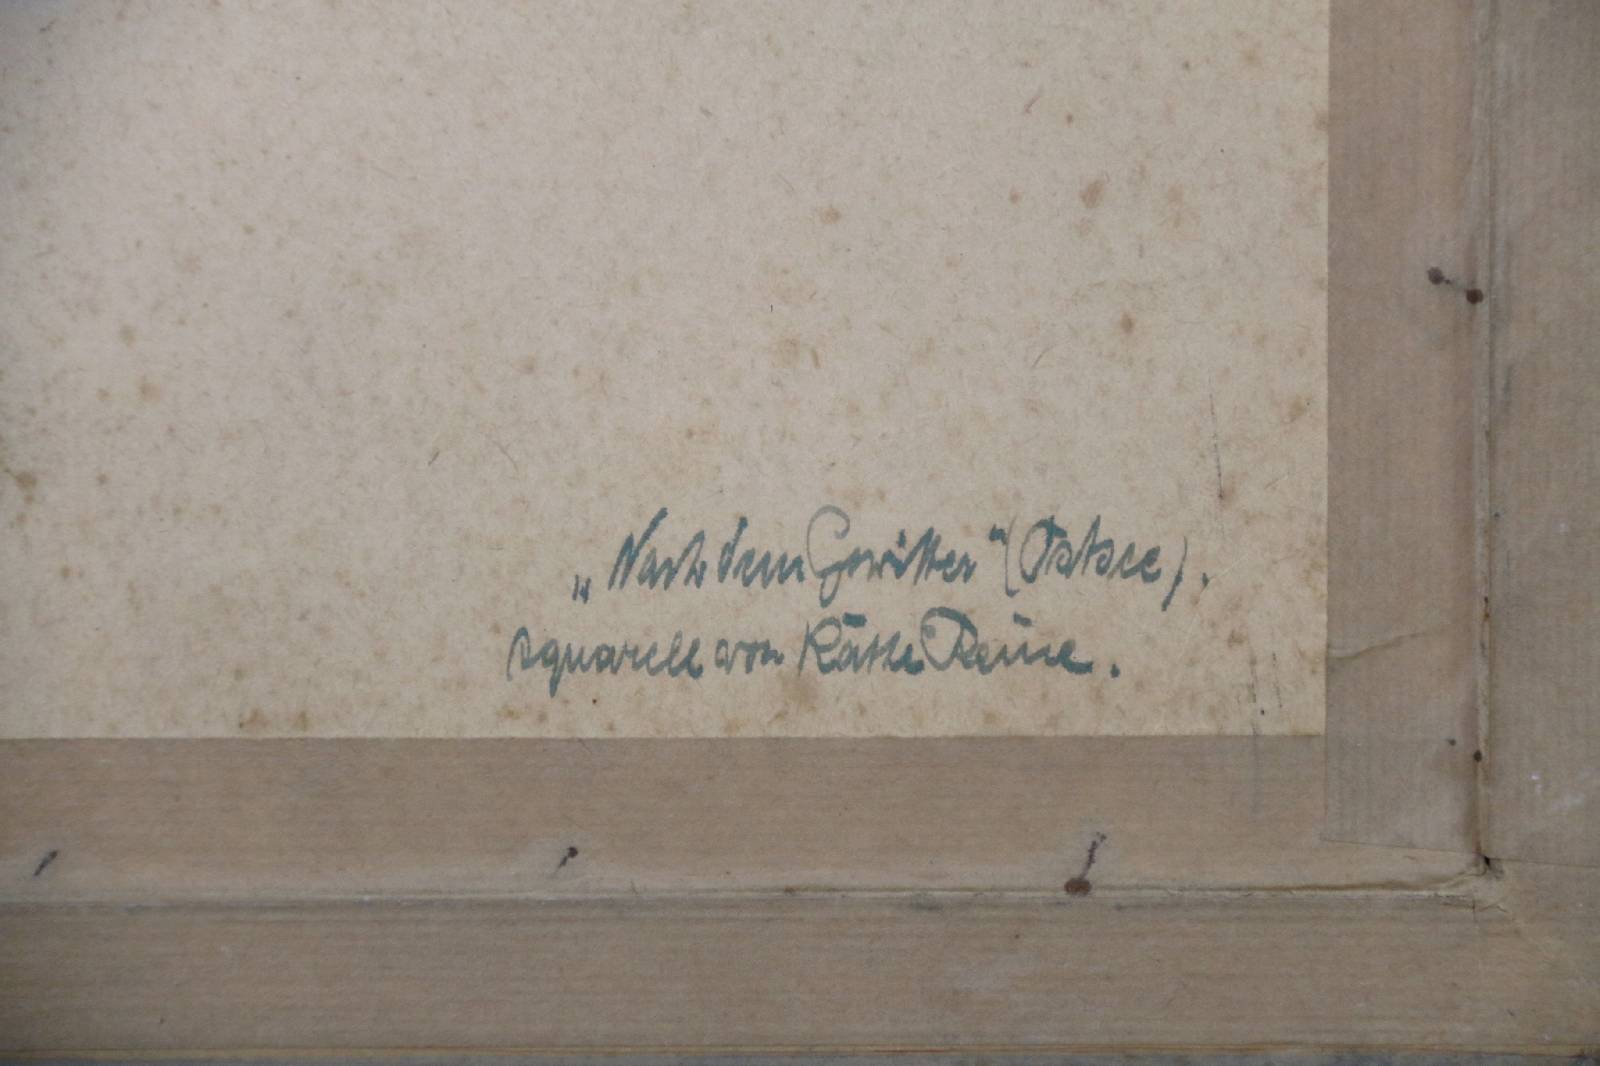 „Nach dem Gewitter“ (Ostsee).
Aquarell von Käthe Reine.